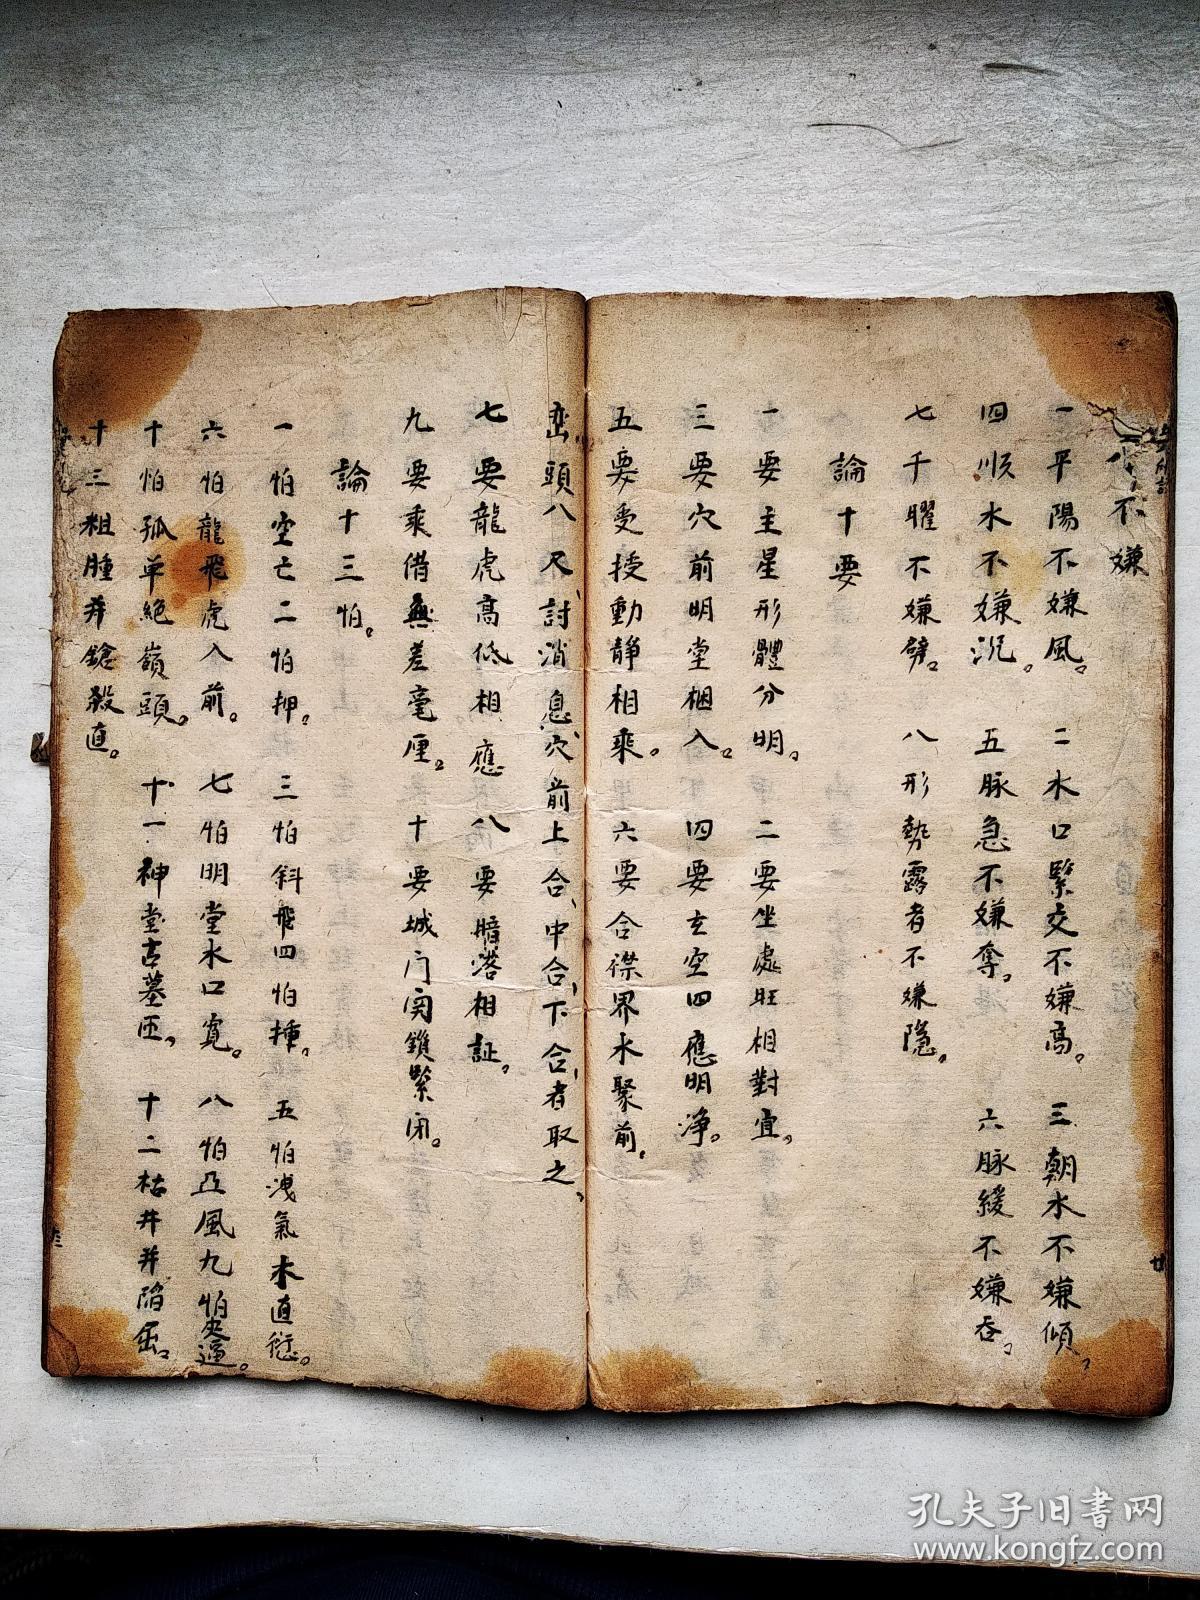 八不嫌
一平陽不嫌風。二水口緊交不嫌高。三朝水不嫌傾。
四順水不嫌沉。五脉急不嫌奪。六脉緩不嫌吞。
七千曜不嫌劈。八形勢露者不嫌隐。
論十要
一要主星形體分明。二要坐處旺相對宜。
三要穴前明堂梱入。四要玄空四應明净。
五要受授動靜相乘。六要合襟界水聚前。
巒頭八尺討消息、穴前上合、中合、下合者取之、
七要龍虎高低相應八要暗潛相証。
九要乘借無差毫厘。十要城门関鎖緊闭。
論十三怕。
一怕空亡二怕押。三怕斜飛四怕捶。五怕洩氣木直
六怕龍飛虎入前。七怕明堂水口寬。八怕亞風九怕逼。
十怕孤单絶嶺頭。十一神堂古墓匝。十二枯井并陷
十三粗腫并鎗殺直。
廿
孔夫子旧書网
www.kongfz.com